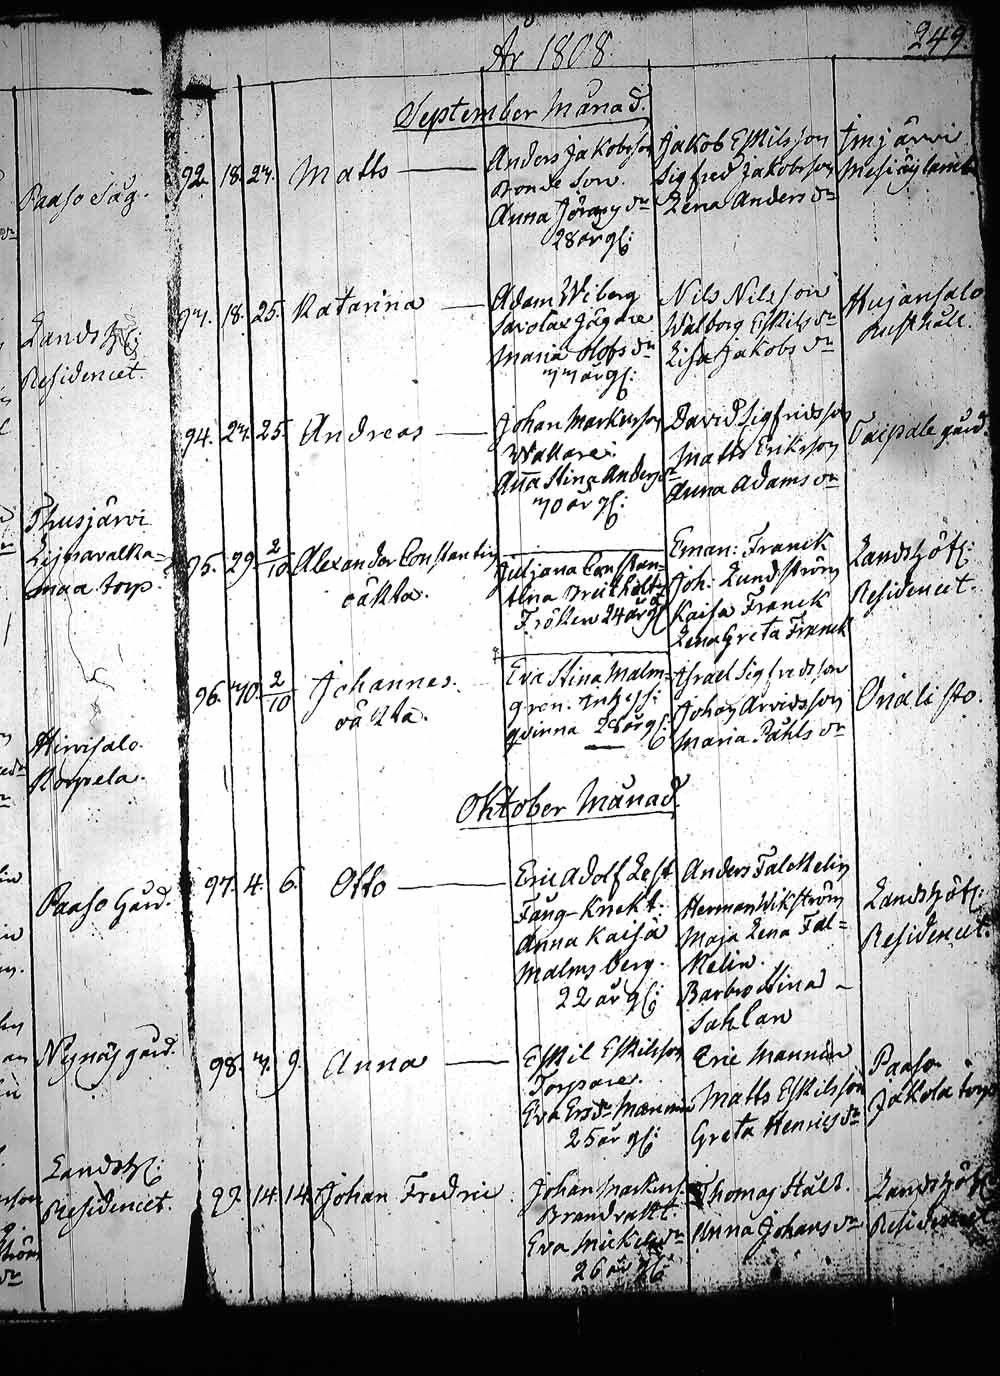 249.
År 1808
September Månad.
Paaso såg.
92. 18. 27. Matts
Anders Jakobsson
Bonde Son.
Anna Jörans dr
28 år gl:
Jakob Eskilsson
Sigfred Jakobsson
Lena Anders dr
Imjärvi
Landsh:
Residencet.
18. 25. Katarina
Adam Wiberg
Savolax Jägare
Maria Olofs dr
år gl:
Nils Nilsson
Walborg Eskils dr
Lisa Jakobs dr
Hujansalo
rusthåll.
94. 27. 25. Andreas
Johan Markusson
Wattare.
Anna Stina Anders dr
år gl:
David Sigfridsson
Matts Eriksson
Anna Adams dr
Taipale gård.
torp.
95. 29. 2/10 Alexander Constantin
oäkta.
Juljana Constan=
tina
Fröken 24 år gl
Eman: Franck
Joh: Lundström
Kaisa Franck
Lena Greta Franck
Landshöfd:
Residencet.
96. 30. 2/10 Johannes.
oäkta.
Eva Stina Malm=
gren.
qvinna 28 år gl:
Israel Sigfredsson
Johan Arvidsson
Maria Påhls dr
Onali sto.
Hirvisalo.
Korpela.
Oktober Månad.
Paaso Gård.
97. 4. 6. Otto
Eric Adolf Zest
Fång-Knekt.
Anna Kaisa
Malmsberg.
22 år gl:
Anders Falckelin
Herman Wikström
Maja Lena Fal=
kelin.
Barbro Stina
Sahlan
Landshöfd:
Residencet.
Nynäs gård.
98. 7. 9. Anna
Eskil Eskilsson
Torpare.
Eva Ersdr Mannin
25 år gl:
Eric Mannin
Matts Eskilsson
Greta Henrics dr
Paaso
Jakola torp
Landsh:
Residencet.
99. 14. 14. Johan Fredric
Johan Markuss.
Brandvakt.
Eva Mickels dr
26 år gl:
Thomas Ståhl.
Anna Johans dr
Landshöfd:
Residencet